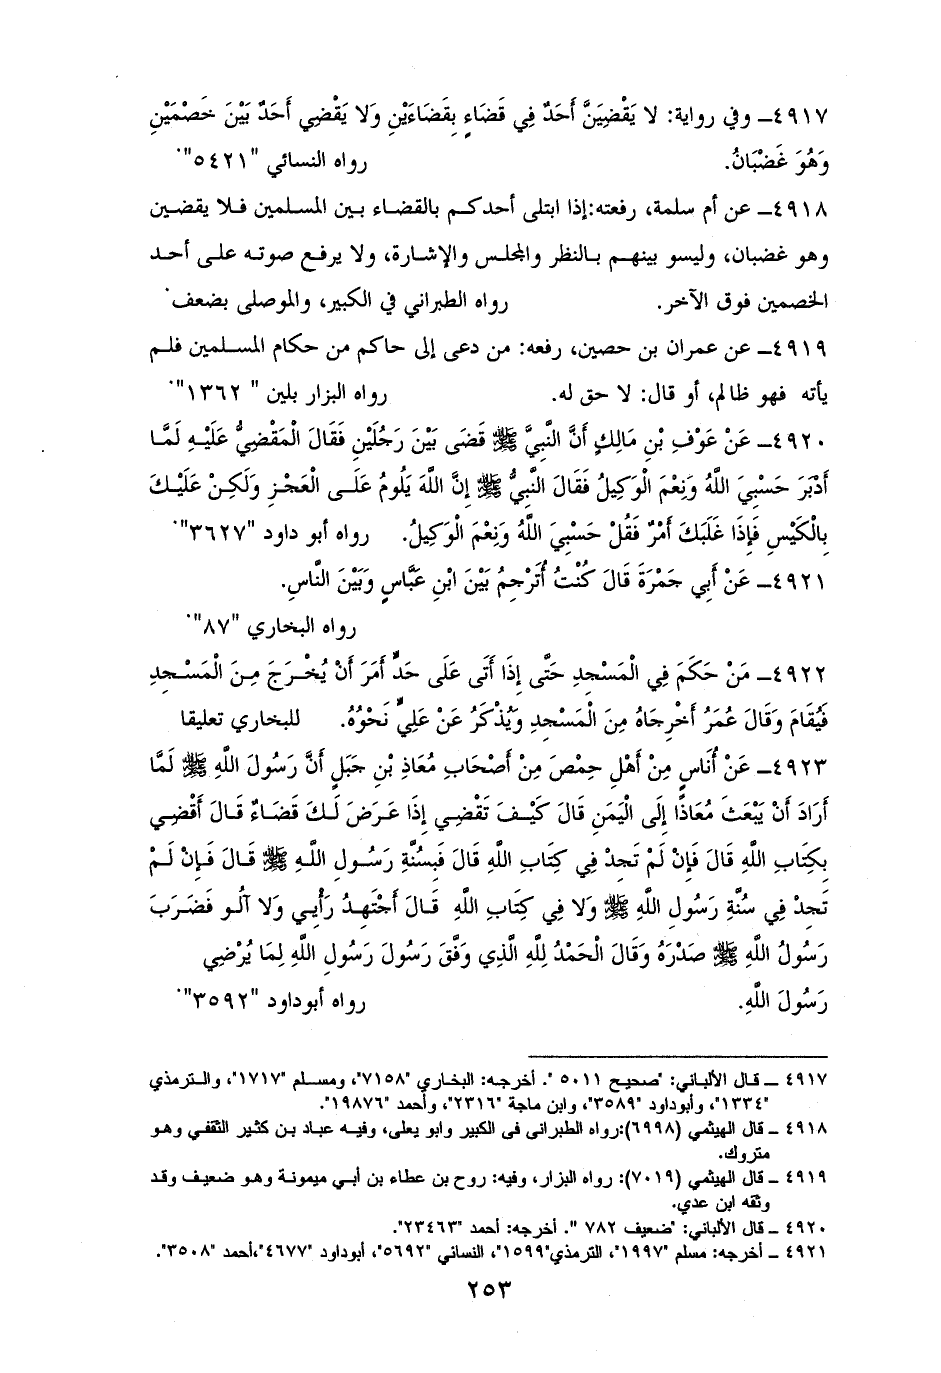 ٤٩١٧ــ وفي رواية: لا يَقْضِيَنَّ أَحَدٌ فِي قَضَاءٍ بِقَضَاءَيْنِ وَلا يَقْضِي أَحَدٌ بَيْنَ خَصْمَيْنِ
وَهُوَ غَضْبَانُ. رواه النسائي "٥٤٢١".
٤٩١٨ــ عن أم سلمة، رفعته:إذا ابتلى أحدكم بالقضاء بين المسلمين فلا يقضين
وهو غضبان، وليسو بينهم بالنظر والمجلس والإشارة، ولا يرفع صوته على أحد
الخصمين فوق الآخر. رواه الطبراني في الكبير، والموصلى بضعف.
٤٩١٩ــ عن عمران بن حصين، رفعه: من دعى إلى حاكم من حكام المسلمين فلم
يأته فهو ظالم، أو قال: لا حق له. رواه البزار بلين " ١٣٦٢".
٤٩٢٠ــ عَنْ عَوْفِ بْنِ مَالِكٍ أَنَّ النَّبِيَّ ﷺ قَضَى بَيْنَ رَجُلَيْنِ فَقَالَ الْمَقْضِيُّ عَلَيْهِ لَمَّا
أَدْبَرَ حَسْبِيَ اللَّهُ وَنِعْمَ الْوَكِيلُ فَقَالَ النَّبِيُّ ﷺ إِنَّ اللَّهَ يَلُومُ عَلَى الْعَجْزِ وَلَكِنْ عَلَيْكَ
بِالْكَيْسِ فَإِذَا غَلَبَكَ أَمْرٌ فَقُلْ حَسْبِيَ اللَّهُ وَنِعْمَ الْوَكِيلُ. رواه أبو داود "٣٦٢٧".
٤٩٢١ــ عَنْ أَبِي جَمْرَةَ قَالَ كُنْتُ أُتَرْجِمُ بَيْنَ ابْنِ عَبَّاسٍ وَبَيْنَ النَّاسِ.
رواه البخاري "٨٧".
٤٩٢٢ــ مَنْ حَكَمَ فِي الْمَسْجِدِ حَتَّى إِذَا أَتَى عَلَى حَدٍّ أَمَرَ أَنْ يُخْرَجَ مِنَ الْمَسْجِدِ
فَيُقَامَ وَقَالَ عُمَرُ أَخْرِجَاهُ مِنَ الْمَسْجِدِ وَيُذْكَرُ عَنْ عَلِيٍّ نَحْوُهُ. للبخاري تعليقا
٤٩٢٣ــ عَنْ أُنَاسٍ مِنْ أَهْلِ حِمْصَ مِنْ أَصْحَابِ مُعَاذِ بْنِ جَبَلٍ أَنَّ رَسُولَ اللَّهِ ﷺ لَمَّا
أَرَادَ أَنْ يَبْعَثَ مُعَاذًا إِلَى الْيَمَنِ قَالَ كَيْفَ تَقْضِي إِذَا عَرَضَ لَكَ قَضَاءٌ قَالَ أَقْضِي
بِكِتَابِ اللَّهِ قَالَ فَإِنْ لَمْ تَجِدْ فِي كِتَابِ اللَّهِ قَالَ فَبِسُنَّةِ رَسُولِ اللَّهِ ﷺ قَالَ فَإِنْ لَمْ
تَجِدْ فِي سُنَّةِ رَسُولِ اللَّهِ ﷺ وَلا فِي كِتَابِ اللَّهِ قَالَ أَجْتَهِدُ رَأْيِي وَلا آلُو فَضَرَبَ
رَسُولُ اللَّهِ ﷺ صَدْرَهُ وَقَالَ الْحَمْدُ لِلَّهِ الَّذِي وَفَّقَ رَسُولَ رَسُولِ اللَّهِ لِمَا يُرْضِي
رَسُولَ اللَّهِ. رواه أبوداود "٣٥٩٢".
٤٩١٧ ــ قال الألباني: "صحيح ٥٠١١ ". أخرجه: البخاري "٧١٥٨"، ومسلم "١٧١٧"، والترمذي
"١٣٣٤"، وأبوداود "٣٥٨٩"، وابن ماجة "٢٣١٦"، وأحمد "١٩٨٧٦".
٤٩١٨ ــ قال الهيثمي (٦٩٩٨):رواه الطبرانى فى الكبير وابو يعلى، وفيه عباد بن كثير الثقفي وهو
متروك.
٤٩١٩ ــ قال الهيثمي (٧٠١٩): رواه البزار، وفيه: روح بن عطاء بن أبي ميمونة وهو ضعيف وقد
وثقه ابن عدي.
٤٩٢٠ ــ قال الألباني: "ضعيف ٧٨٢ ". أخرجه: أحمد "٢٣٤٦٣".
٤٩٢١ ــ أخرجه: مسلم "١٩٩٧"، الترمذي"١٥٩٩"، النسائي "٥٦٩٢"، أبوداود "٤٦٧٧"،أحمد "٣٥٠٨".
٢٥٣